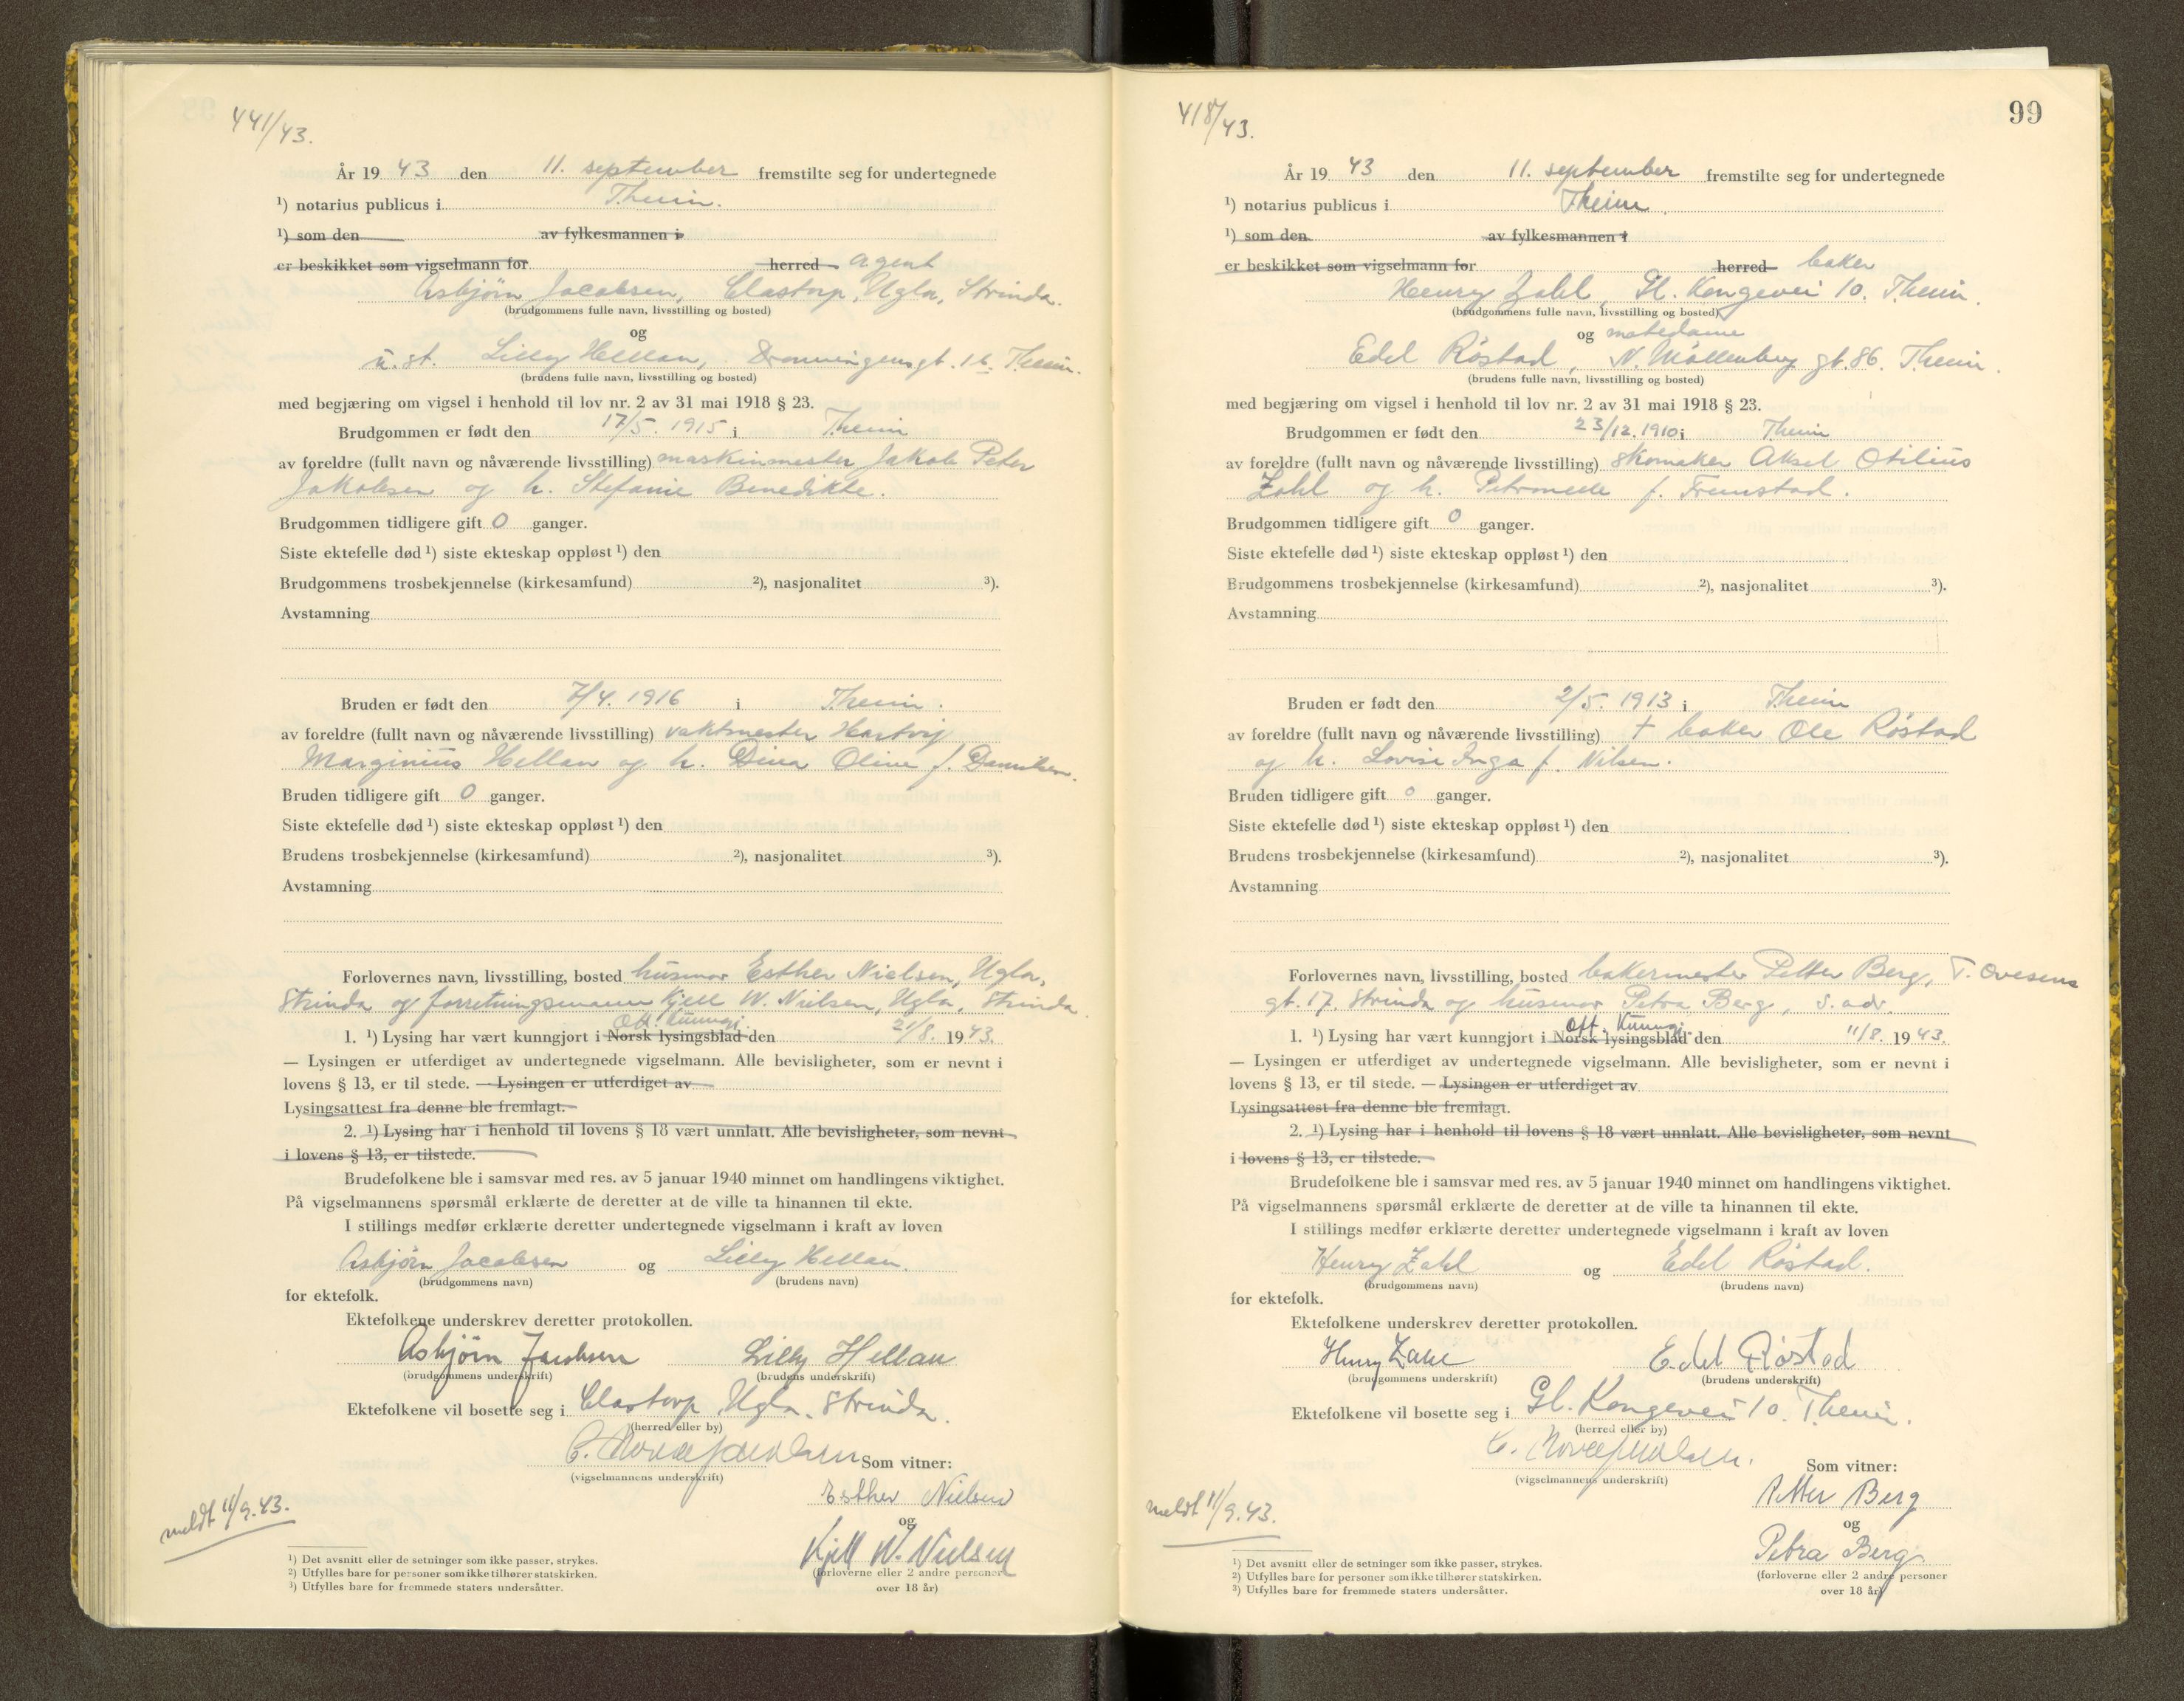 441/43.
År 19 43 den 11. september fremstilte seg for undertegnede
¹) notarius publicus i Theim.
¹) som den av fylkesmannen i
er beskikket som vigselmann for herred agent
Asbjørn Jacobsen, Clastorp, Ugla, Strinda.
(brudgommens fulle navn, livsstilling og bosted)
og
u. st. Lilly Hellan, Dronningensgt. 1b. Theim.
(brudens fulle navn, livsstilling og bosted)
med begjæring om vigsel i henhold til lov nr. 2 av 31 mai 1918 § 23.
Brudgommen er født den 17/5. 1915 i Theim
av foreldre (fullt navn og nåværende livsstilling) maskinmester Jakob Peter
Jakobsen og h. Stefanie Benedikte.
Brudgommen tidligere gift 0 ganger.
Siste ektefelle død ¹) siste ekteskap oppløst ¹) den
Brudgommens trosbekjennelse (kirkesamfund) ²), nasjonalitet ³).
Avstamning
Bruden er født den 7/4. 1916 i Theim.
av foreldre (fullt navn og nåværende livsstilling) vaktmester Hartvig
Marginius Hellan og h. Dina Oline f. Danielsen.
Bruden tidligere gift 0 ganger.
Siste ektefelle død ¹) siste ekteskap oppløst ¹) den
Brudens trosbekjennelse (kirkesamfund) ²), nasjonalitet ³).
Avstamning
Forlovernes navn, livsstilling, bosted husmor Esther Nielsen, Ugla,
Strinda og forretningsmann Kjell W. Nielsen, Ugla, Strinda.
Off. Kunngj.
1. ¹) Lysing har vært kunngjort i Norsk lysingsblad den 21/8. 19 43.
— Lysingen er utferdiget av undertegnede vigselmann. Alle bevisligheter, som er nevnt i
lovens § 13, er til stede. — Lysingen er utferdiget av
Lysingsattest fra denne ble fremlagt.
2. ¹) Lysing har i henhold til lovens § 18 vært unnlatt. Alle bevisligheter, som nevnt
i lovens § 13, er tilstede.
Brudefolkene ble i samsvar med res. av 5 januar 1940 minnet om handlingens viktighet.
På vigselmannens spørsmål erklærte de deretter at de ville ta hinannen til ekte.
I stillings medfør erklærte deretter undertegnede vigselmann i kraft av loven
Asbjørn Jacobsen og Lilly Hellan.
(brudgommens navn) (brudens navn)
for ektefolk.
Ektefolkene underskrev deretter protokollen.
Asbjørn Jacobsen Lilly Hellan
(brudgommens underskrift) (brudens underskrift)
Ektefolkene vil bosette seg i Clastorp, Ugla, Strinda.
(herred eller by)
C. Som vitner:
(vigselmannens underskrift)
Esther Nielsen
og
Kjell W. Nielsen
(forloverne eller 2 andre personer
over 18 år)
meldt 11/9.43.
¹) Det avsnitt eller de setninger som ikke passer, strykes.
²) Utfylles bare for personer som ikke tilhører statskirken.
³) Utfylles bare for fremmede staters undersåtter.
99
418/43.
År 19 43 den 11. september fremstilte seg for undertegnede
¹) notarius publicus i Theim.
¹) som den av fylkesmannen i
er beskikket som vigselmann for herred baker
Henry Zahl, Gl. Kongevei 10. Theim.
(brudgommens fulle navn, livsstilling og bosted)
og matedame
Edel Röstad, N. Møllenberg gt. 86. Theim.
(brudens fulle navn, livsstilling og bosted)
med begjæring om vigsel i henhold til lov nr. 2 av 31 mai 1918 § 23.
Brudgommen er født den 23/12. 1910 i Theim
av foreldre (fullt navn og nåværende livsstilling) skomaker Aksel Otilius
Zahl og h. Petronelle f. Fremstad.
Brudgommen tidligere gift 0 ganger.
Siste ektefelle død ¹) siste ekteskap oppløst ¹) den
Brudgommens trosbekjennelse (kirkesamfund) ²), nasjonalitet ³).
Avstamning
Bruden er født den 2/5. 1913 i Theim
av foreldre (fullt navn og nåværende livsstilling) † baker Ole Röstad
og h. Lovise Inga f. Nilsen.
Bruden tidligere gift 0 ganger.
Siste ektefelle død ¹) siste ekteskap oppløst ¹) den
Brudens trosbekjennelse (kirkesamfund) ²), nasjonalitet ³).
Avstamning
Forlovernes navn, livsstilling, bosted bakermester Petter Berg, T. Ovesens
gt. 17. Strinda og husmor Petra Berg, s. adr.
Off. Kunngj.
1. ¹) Lysing har vært kunngjort i Norsk lysingsblad den 11/8. 19 43.
— Lysingen er utferdiget av undertegnede vigselmann. Alle bevisligheter, som er nevnt i
lovens § 13, er til stede. — Lysingen er utferdiget av
Lysingsattest fra denne ble fremlagt.
2. ¹) Lysing har i henhold til lovens § 18 vært unnlatt. Alle bevisligheter, som nevnt
i lovens § 13, er tilstede.
Brudefolkene ble i samsvar med res. av 5 januar 1940 minnet om handlingens viktighet.
På vigselmannens spørsmål erklærte de deretter at de ville ta hinannen til ekte.
I stillings medfør erklærte deretter undertegnede vigselmann i kraft av loven
Henry Zahl og Edel Röstad.
(brudgommens navn) (brudens navn)
for ektefolk.
Ektefolkene underskrev deretter protokollen.
Henry Zahl Edel Röstad
(brudgommens underskrift) (brudens underskrift)
Ektefolkene vil bosette seg i Gl. Kongevei 10. Theim.
(herred eller by)
C.
(vigselmannens underskrift) Som vitner:
Petter Berg
og
Petra Berg
(forloverne eller 2 andre personer
over 18 år)
meldt 11/9.43.
¹) Det avsnitt eller de setninger som ikke passer, strykes.
²) Utfylles bare for personer som ikke tilhører statskirken.
³) Utfylles bare for fremmede staters undersåtter.